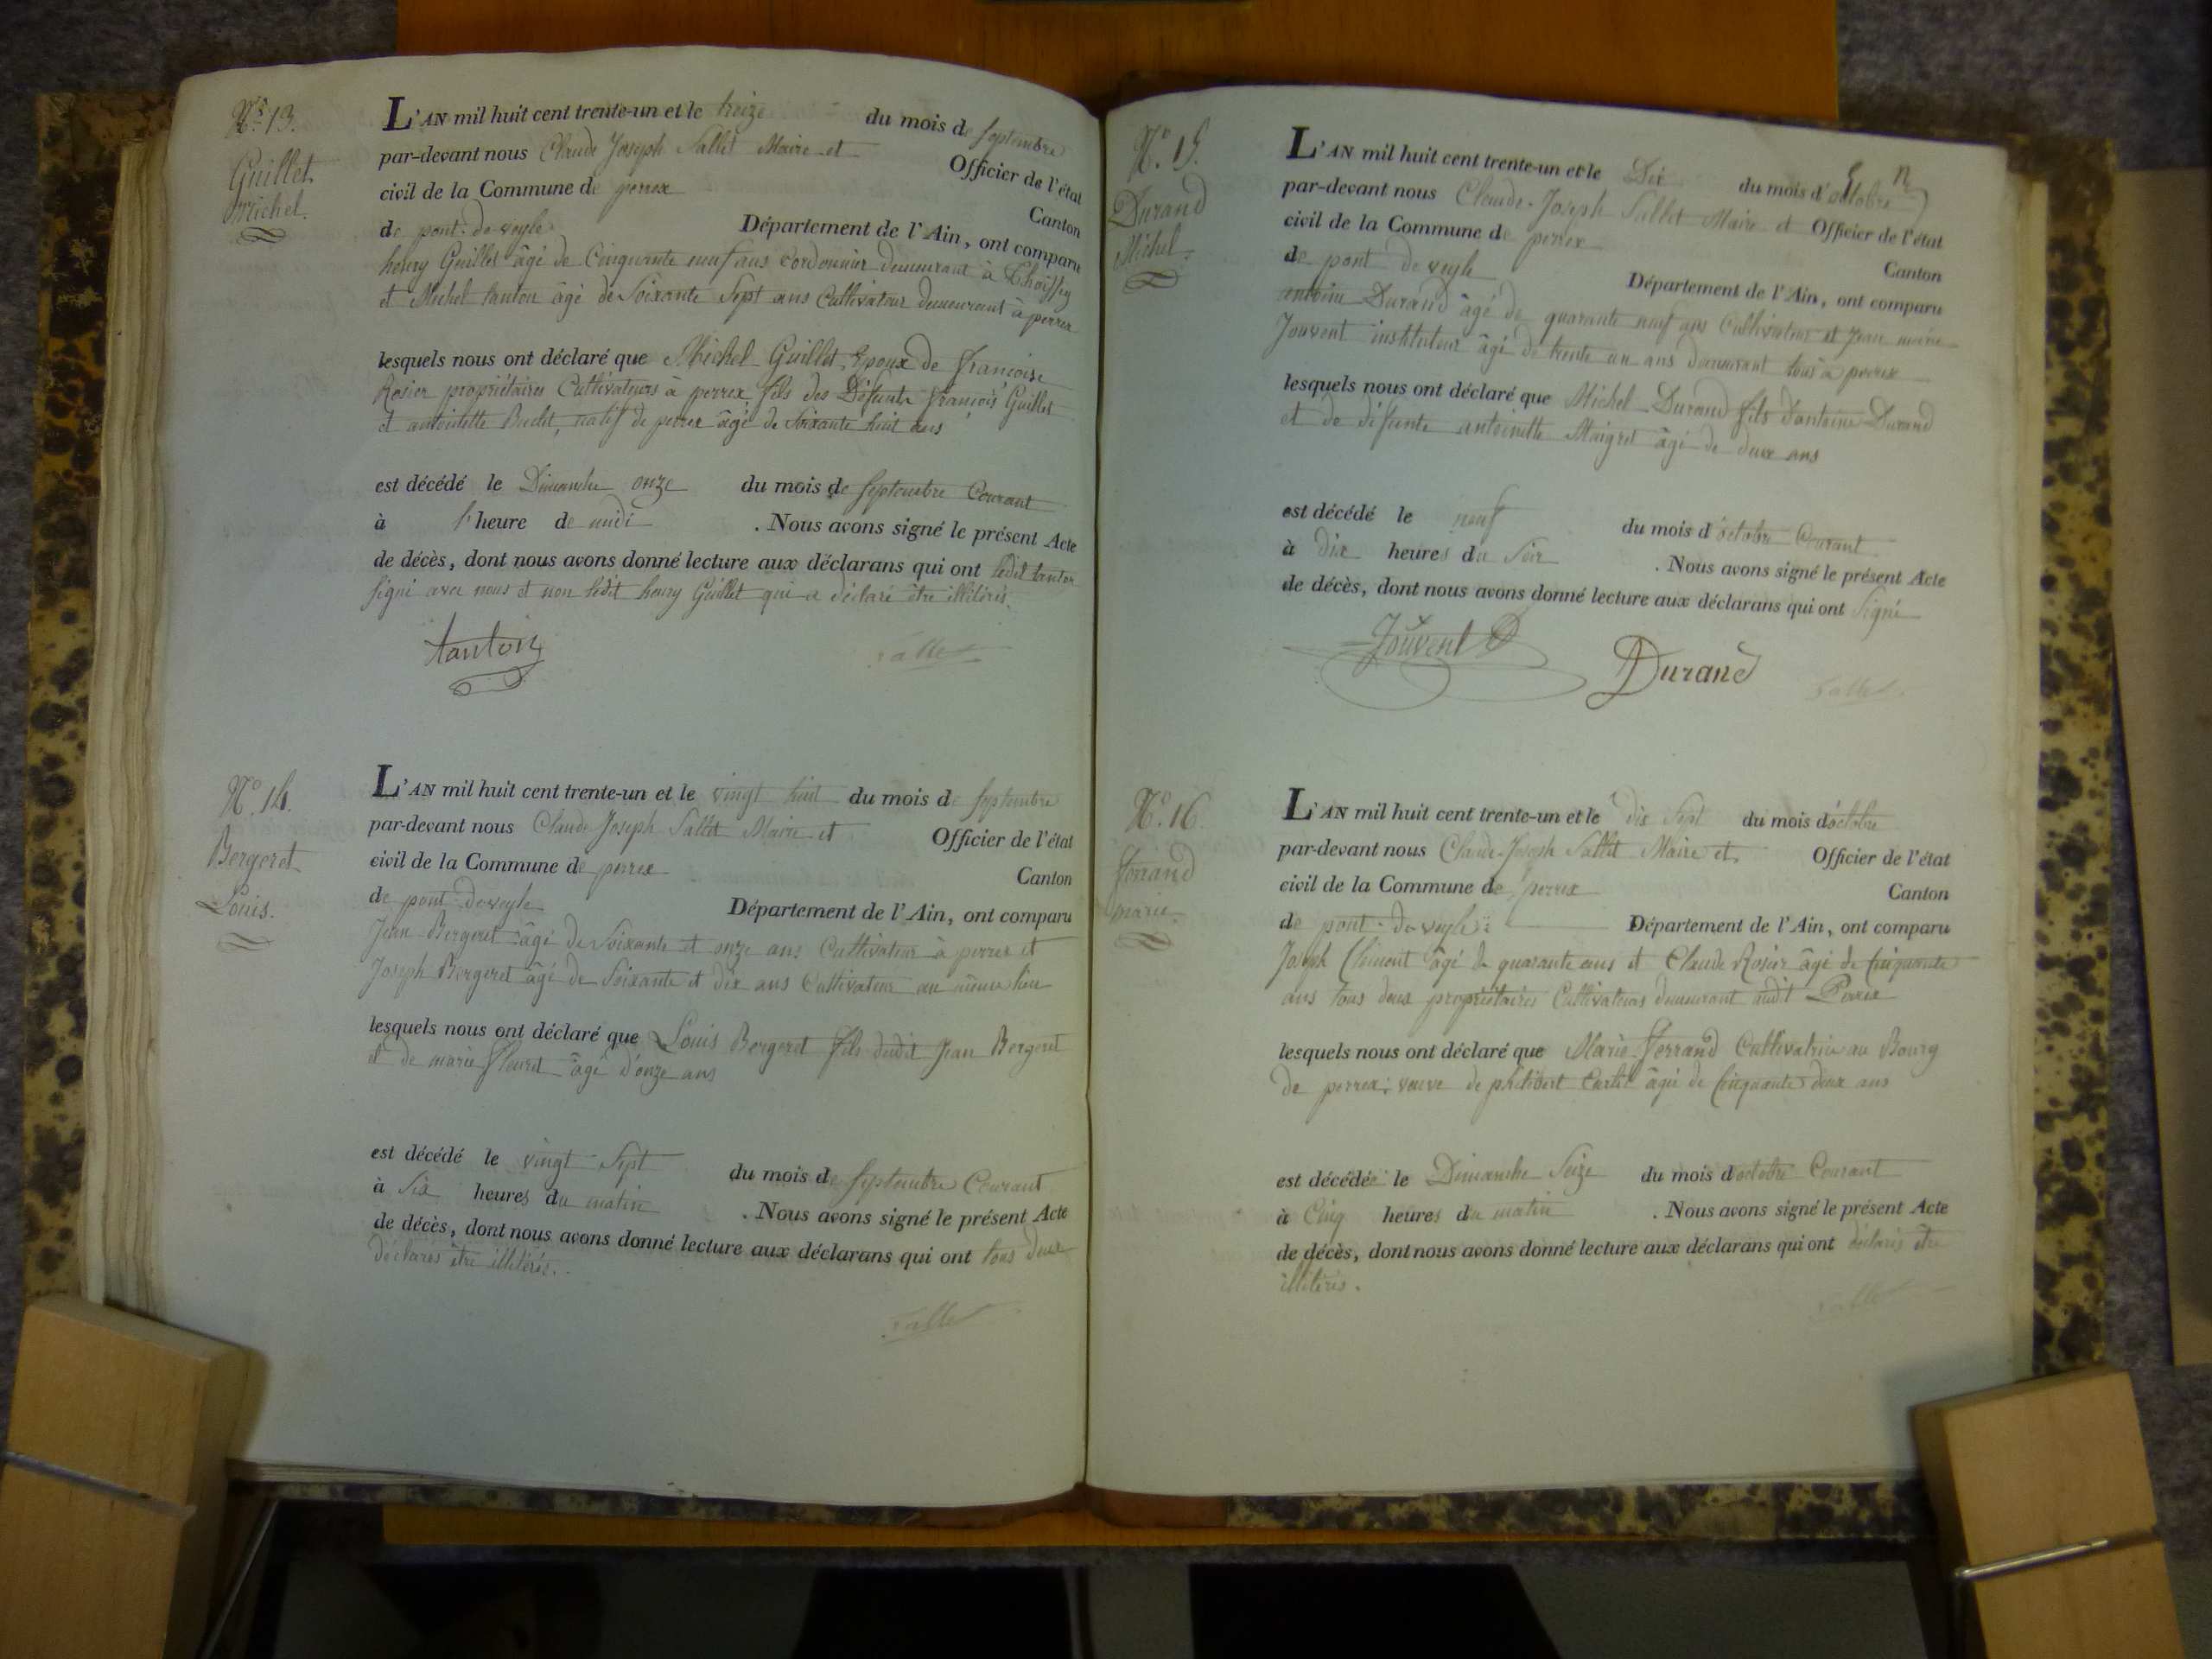 N° 13.
Guillet
Michel.
L'AN mil huit cent trente-un et le treize du mois de septembre
par-devant nous Claude Joseph Sallet Maire et Officier de l'état
civil de la Commune de perrex Canton
de pont-de-veyle Département de l'Ain, ont comparu
henry Guillet âgé de Cinquante neuf ans Cordonnier demeurant à
et Michel tanton âgé de Soixante Sept ans Cultivateur demeurant à perrex
lesquels nous ont déclaré que Michel Guillet Epoux de françoise
Rosier propriétaires Cultivateurs à perrex, fils des Défunts françois Guillet
et antoinette natif de perrex âgé de Soixante huit ans
est décédé le Dimanche onze du mois de septembre Courant
à l'heure de midi . Nous avons signé le présent Acte
de décès, dont nous avons donné lecture aux déclarans qui ont ledit tanton
signé avec nous et non ledit henry Guillet qui a déclaré être illitérés.
tanton
Sallet
N° 14.
Bergeret
Louis.
L'AN mil huit cent trente-un et le vingt huit du mois de septembre
par-devant nous Claude Joseph Sallet Maire et Officier de l'état
civil de la Commune de perrex Canton
de pont-de-veyle Département de l'Ain, ont comparu
Jean Bergeret âgé de Soixante et onze ans Cultivateur à perrex et
Joseph Bergeret âgé de Soixante et dix ans Cultivateur au même lieu
lesquels nous ont déclaré que Louis Bergeret fils dudit Jean Bergeret
et de marie fleuret âgé d'onze ans
est décédé le vingt Sept du mois de septembre Courant
à Six heures du matin . Nous avons signé le présent Acte
de décès, dont nous avons donné lecture aux déclarans qui ont tous deux
déclarés être illitérés.
Sallet
N° 15.
Durand
Michel.
L'AN mil huit cent trente-un et le Dix du mois d'octobre
par-devant nous Claude-Joseph Sallet Maire et Officier de l'état
civil de la Commune de perrex Canton
de pont de veyle Département de l'Ain, ont comparu
antoine Durand âgé de quarante neuf ans Cultivateur et Jean marie
Jouvent instituteur âgé de trente un ans demeurant tous à perrex
lesquels nous ont déclaré que Michel Durand fils d'antoine Durand
et de défunte antoinette Maigret âgé de deux ans
est décédé le neuf du mois d'octobre Courant
à dix heures du Soir . Nous avons signé le présent Acte
de décès, dont nous avons donné lecture aux déclarans qui ont Signé
Jouvent Durand
Sallet
N° 16
ferrand
marie.
L'AN mil huit cent trente-un et le dix Sept du mois d'octobre
par-devant nous Claude-Joseph Sallet Maire et Officier de l'état
civil de la Commune de perrex Canton
de pont-de-veyle Département de l'Ain, ont comparu
Joseph Climent âgé de quarante ans et Claude Rosier âgé de Cinquante
ans tous deux propriétaires Cultivateurs demeurant audit Perrex
lesquels nous ont déclaré que Marie ferrand Cultivatrice au Bourg
de perrex, veuve de philibert âgée de Cinquante deux ans
est décédée le Dimanche Seize du mois d'octobre Courant
à Cinq heures du matin . Nous avons signé le présent Acte
de décès, dont nous avons donné lecture aux déclarans qui ont déclarés être
illitérés.
Sallet